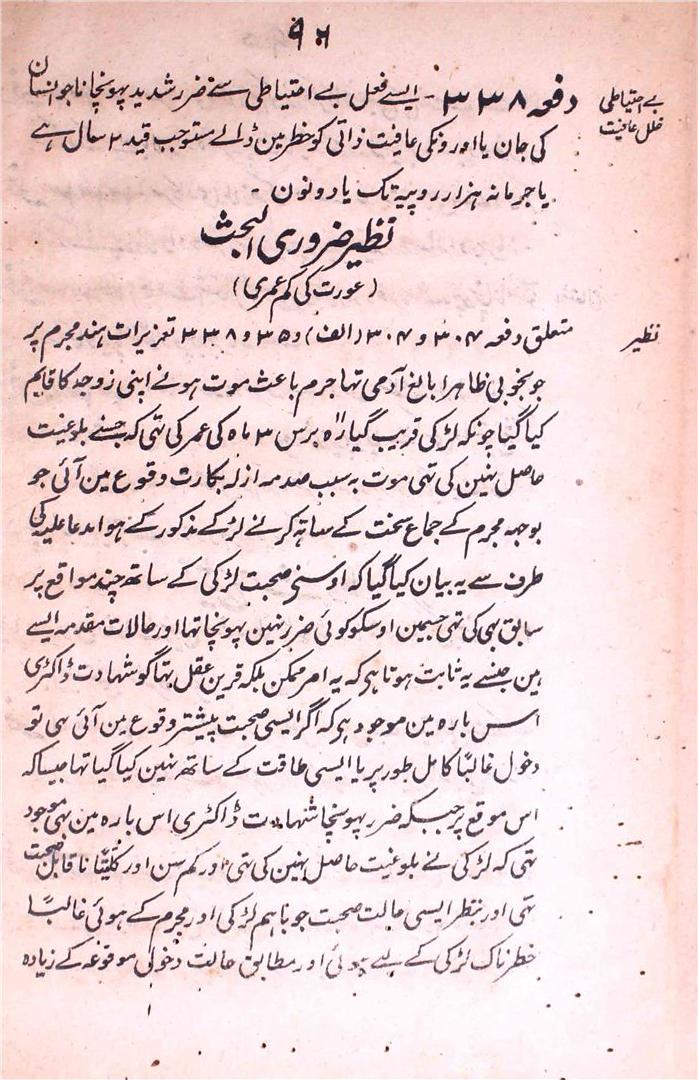 ۹۶
بے احتیاطی
خلل عافیت
دفعہ ۳۳۸ - ایسے فعل بے احتیاطی سے ضرر شدید پہونچانا جو انسان
کی جان یا اورونکی عافیت ذاتی کو خطر مین ڈالے مستوجب قید ۲ سال ہے
یا جرمانہ ہزار روپیہ تک یا دونون -
نظیر ضروری البحث
(عورت کی کم عمری)
نظیر
متعلق دفعہ ۳۰۴ و ۳۰۴ (الف) و ۳۲۵ و ۳۳۸ تعزیرات ہند مجرم پر
جو بخوبی ظاہرا بالغ آدمی تہا جرم باعث موت ہونے اپنی زوجہ کا قایم
کیا گیا چونکہ لڑکی قریب گیارہ برس ۳ ماہ کی عمر کی تہی کہ جسنے بلوغیت
حاصل نہین کی تہی موت بہ سبب صدمہ ازلہ بکارت وقوع مین آئی جو
بوجہ مجرم کے جماع سخت کے ساتھ کرنے لڑکے مذکور کے ہوا مدعاعلیہ کی
طرف سے یہ بیان کیا گیا کہ اوسنی صحبت لڑکی کے ساتھ چند مواقع پر
سابق بہی کی تہی جسمین اوسکو کوئی ضرر نہین پہونچا تہا اور حالات مقدمہ ایسے
ہین جنسے یہ ثابت ہوتا ہی کہ یہ امر ممکن بلکہ قرین عقل تہا گو شہادت ڈاکٹری
اس بارہ مین موجود ہی کہ اگر ایسی صحبت پیشتر وقوع مین آئی ہی تو
دخول غالبًا کامل طور پر یا ایسی طاقت کے ساتھ نہین کیا گیا تہا جیسا کہ
اس موقع پر جبکہ ضرر پہونچا شہادت ڈاکٹری اس بارہ مین بہی موجود
تہی کہ لڑکی نے بلوغیت حاصل نہین کی تہی اور کم سن اور کلیتًا ناقابل صحبت
تہی اور بنظر ایسی حالت صحبت جو باہم لڑکی اور مجرم کے ہوئی غالبًا
خطرناک لڑکی کے لیے ہوئی اور مطابق حالت دخول موقوعہ کے زیادہ